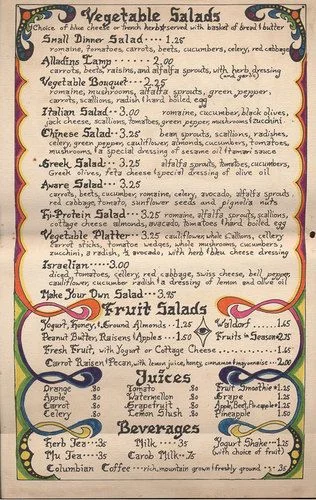 Vegetable Salads
Choice of blue cheese or french herbs served with basket of bread & butter
Small Dinner Salad.....1.25
romaine, tomatoes, carrots, beets, cucumbers, celery, red cabbage
Alladins Lamp.......2.00
carrots, beets, raisins, and alfalfa sprouts, with herb dressing
(and garlic)
Vegetable Bouquet...2.25
romaine, mushrooms, alfalfa sprouts, green pepper,
carrots, scallions, radish & hard boiled egg
Italian Salad...3.00 romaine, cucumber, black olives,
jack cheese, scallions, tomatoes, green pepper, mushrooms & zucchini
Chinese Salad...3.25 bean sprouts, scallions, radishes,
celery, green pepper, cauliflower, almonds, cucumbers, tomatoes,
mushrooms, & a special dressing of sesame oil & tamari sauce
Greek Salad...3.25 alfalfa sprouts, tomatoes, cucumbers,
Greek olives, feta cheese & special dressing of olive oil
Aware Salad...3.25
carrots, beets, cucumber, romaine, celery, avocado, alfalfa sprouts
red cabbage, tomato, sunflower seeds and pignolia nuts
Hi-Protein Salad...3.25 romaine, alfalfa sprouts, scallions,
cottage cheese, almonds, avocado, tomatoes & hard boiled egg
Vegetable Platter...3.25 cauliflower, whole scallions, celery
carrot sticks, tomatoe wedges, whole mushrooms, cucumbers,
zucchini, a radish, & avocado, with herb & bleu cheese dressing
Israelian.....3.00
diced tomatoes, celery, red cabbage, swiss cheese, bell pepper,
cauliflower, cucumber radish & a dressing of lemon and olive oil
Make Your Own Salad...3.95
Fruit Salads
Yogurt, Honey, & Ground Almonds..1.25 Waldorf.....1.65
Peanut Butter, Raisens & Apples...1.50 Fruits in Season 2.75
Fresh Fruit, with Yogurt or Cottage Cheese.........1.65
Carrot Raisen & Pecan, with lemon juice, honey, cinnamon & mayonnaise...2.00
Juices
Orange .80 Tomato .80 Fruit Smoothie 1.25
Apple .80 Watermelon .80 Grape 1.25
Carrot .80 Grapefruit .80 Apple, Beet, Pineapple 1.25
Celery .80 Lemon Slush .80 Pineapple 1.50
Beverages
Herb Tea...35 Milk....35 Yogurt Shake..1.25
Mu Tea....35 Carob Milk..75 (with choice of fruit)
Columbian Coffee...rich, mountain grown & freshly ground...35